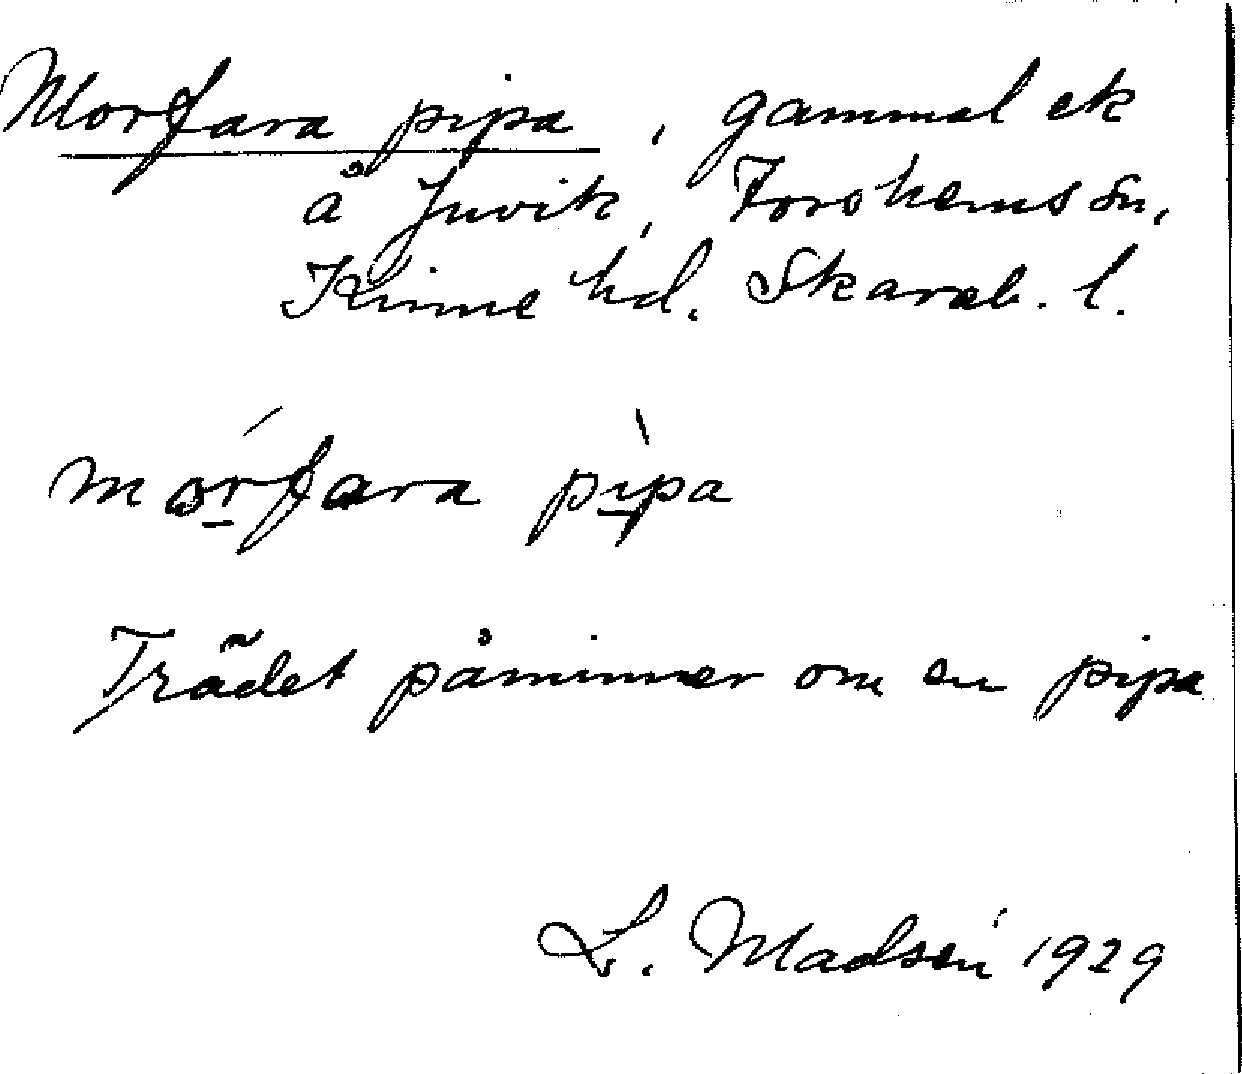 Morfara pipa, gammal ek
å Juvik, Forshems sn,
Kinne hd. Skarab. l.
mórfara pìpa
Trädet påminner om en pipa
L. Madsén 1929